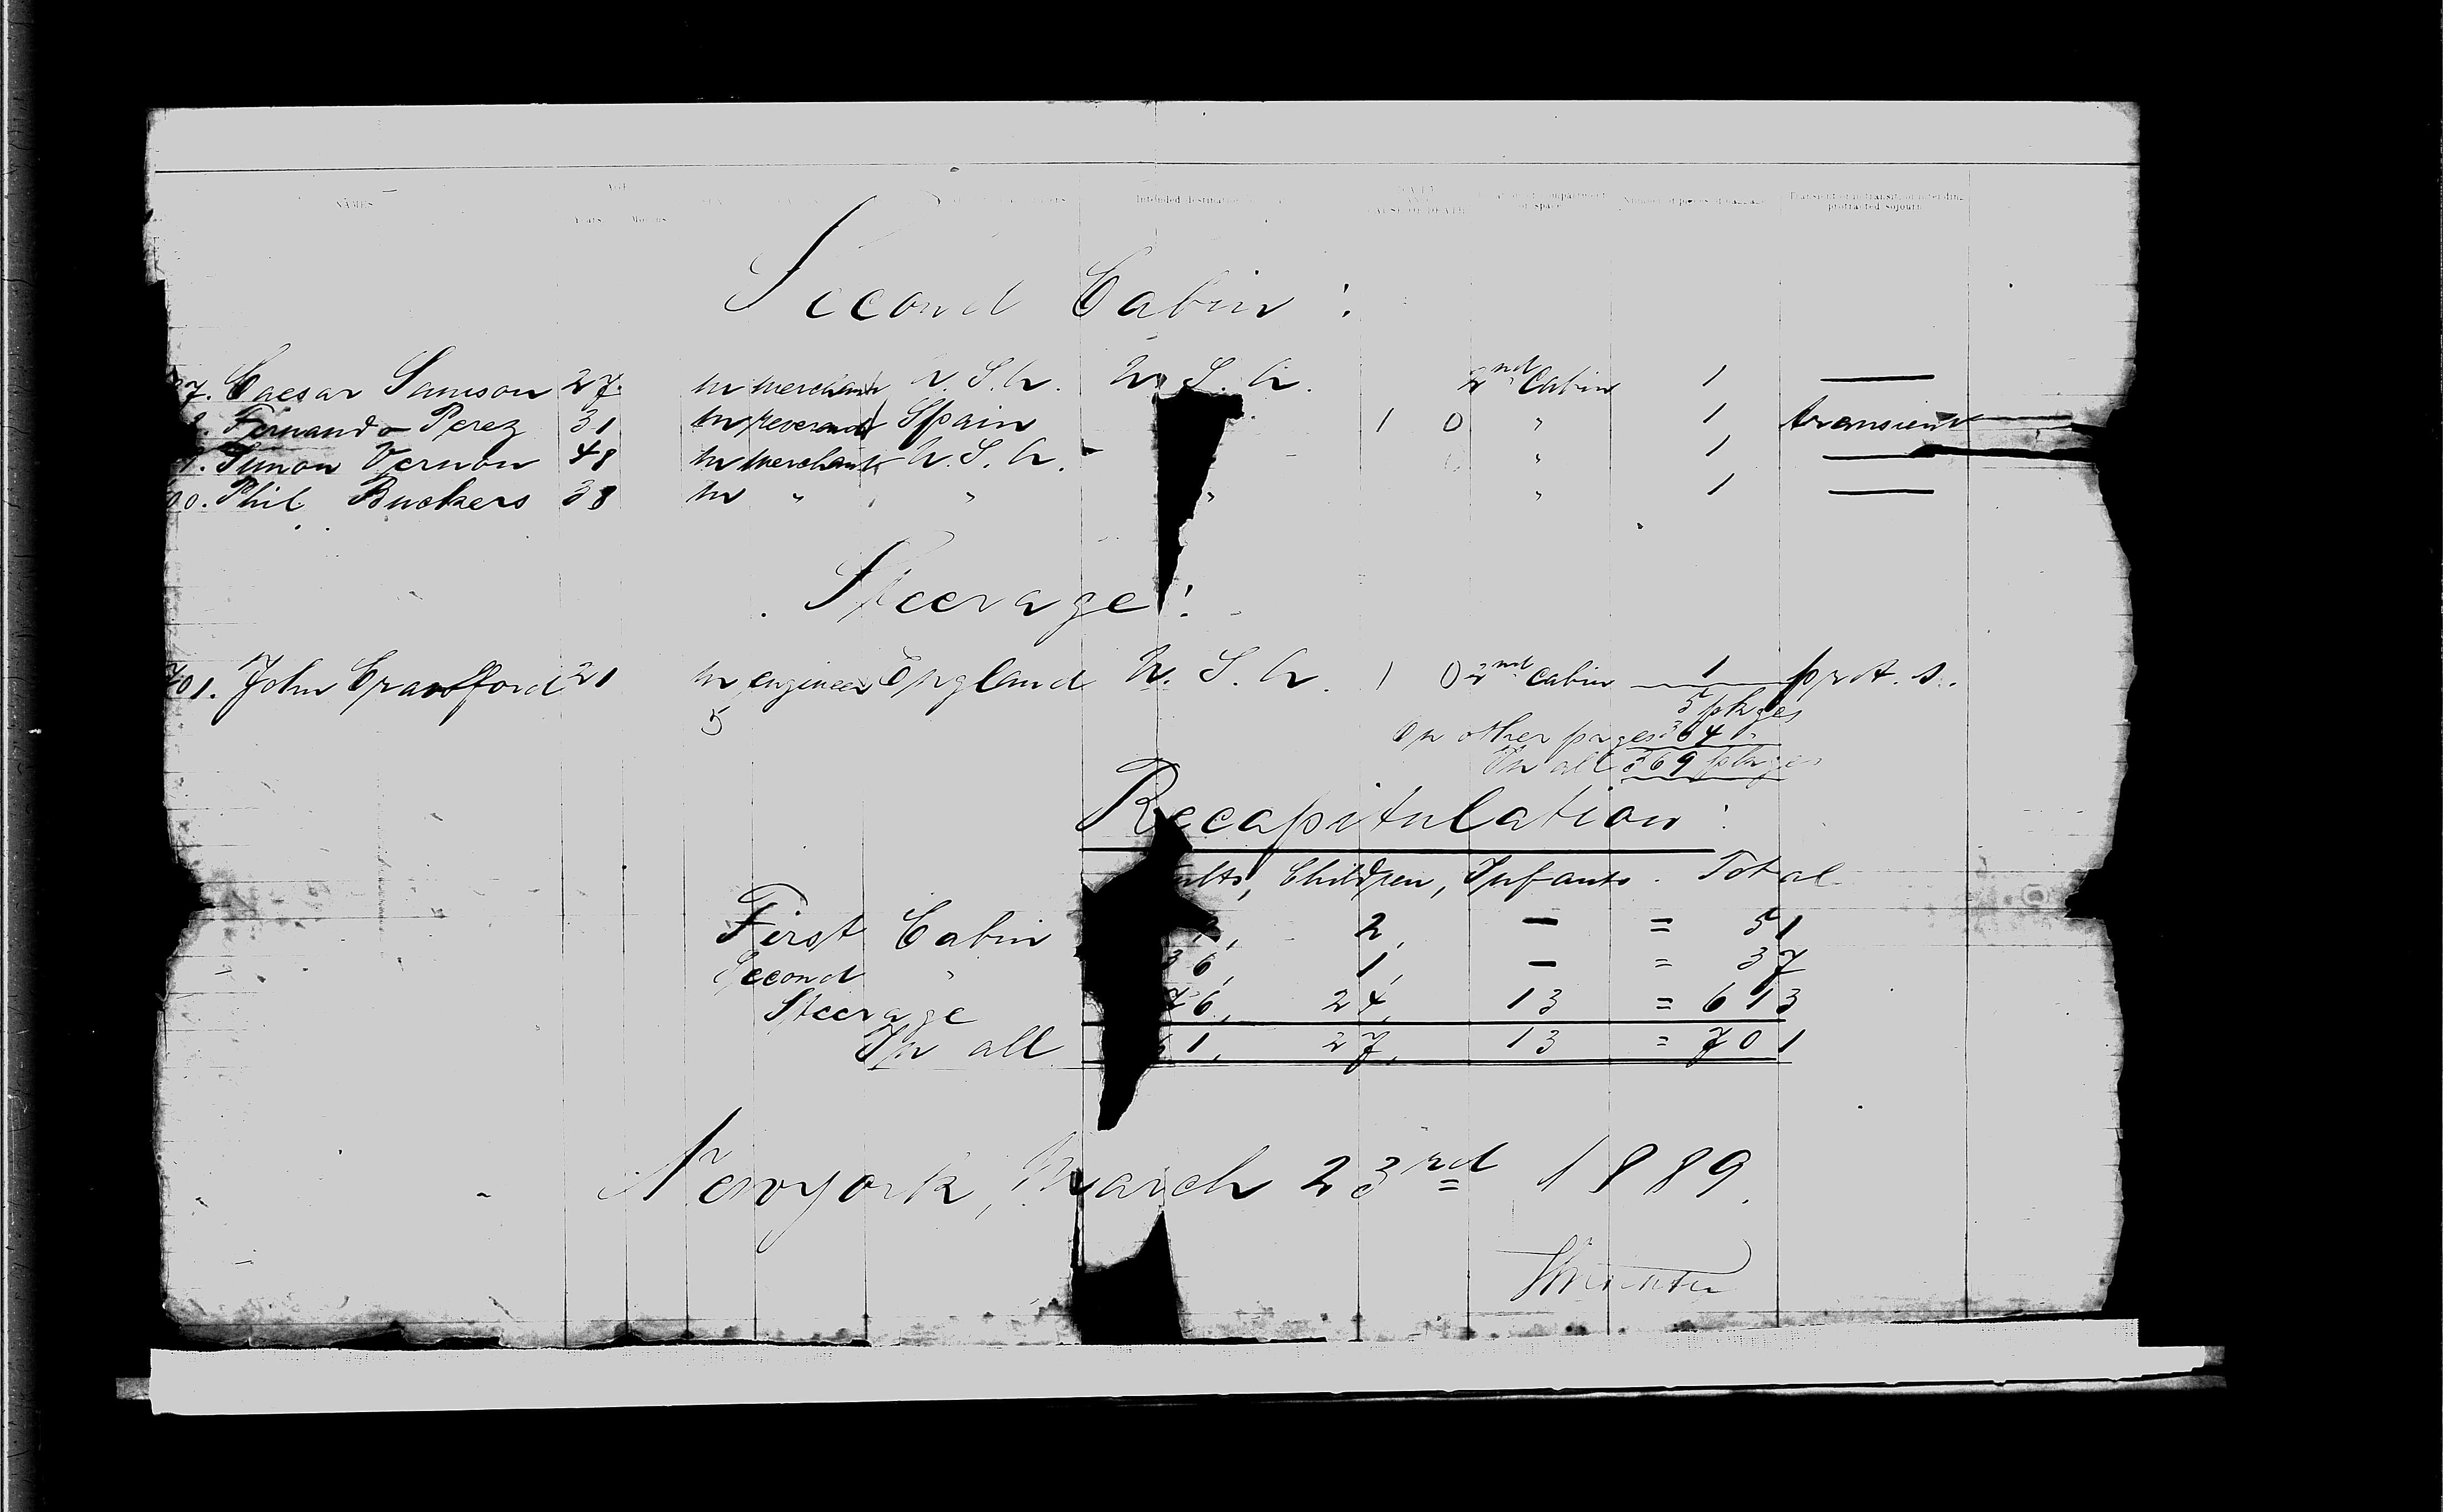 NAMES Age Years Months Intended destination CAUSE OF DEATH compartment or space Number of pieces of baggage Transient or in transit or intending protracted sojourn
Second Cabin :
7. Caesar Samson 27. m merchant U. S. A. U. S. A. 2nd Cabin 1 —
Fernando Perez 31 m reverend Spain 1 0 " 1 transient
Simon Vernon 48 m merchant U. S. A. " 1 —
00. Phil Buckers 38 m " " " " 1 —
Steerage :
701. John Crawfford 21 m engineer England U. S. A. 1 0 2nd Cabin 1 prot. s.
5 5 pkges
On other pages 364 "
In all 369 pkges
Recapitulation :
ults, Children, Infants. Total
First Cabin 2, — = 51
Second " 36, 1, — = 37
Steerage 76, 24, 13 = 613
In all 61, 27, 13 = 701
Newyork, March 23rd 1889.